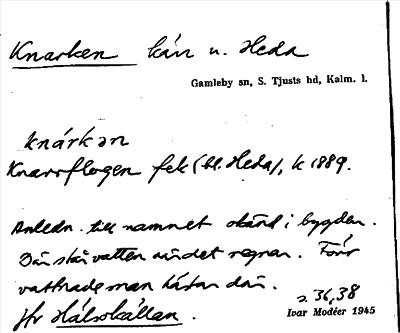 Knarken kärr u. Heda
Gamleby sn, S. Tjusts hd, Kalm. l.
knárkən
Knarrflogen fek (bl. Heda), k 1889.
Anledn. till namnet okänd i bygden.
Där står vatten när det regnar. Förr
vattnade man hästar där.
Jfr Hälsokällan.
s. 36,38
Ivar Modéer 1945